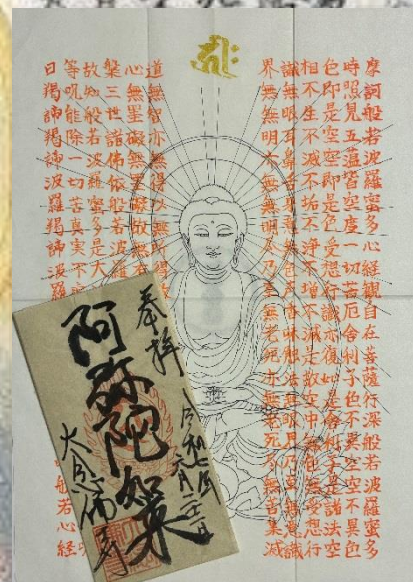 摩訶般若波羅蜜多心経観自在菩薩行深般若波羅蜜多
時照見五蘊皆空度一切苦厄舎利子色不異空空不異色
色即是空空即是色受想行識亦復如是舎利子是諸法空
相不生不滅不垢不浄不増不減是故空中無色無受想行
識無眼耳鼻舌身意無色声香味触法無眼界乃至無意識
界無無明亦無無明尽乃至無老死亦無老死尽無苦集滅
道無智亦無得以無所得
心無罣礙無罣礙故無有
槃三世諸佛依般若波羅
故知般若波羅蜜多是大
等呪能除一切苦真実不
曰羯諦羯諦波羅羯諦波羅
般若心経
奉拝
令和七年
阿弥陀如来